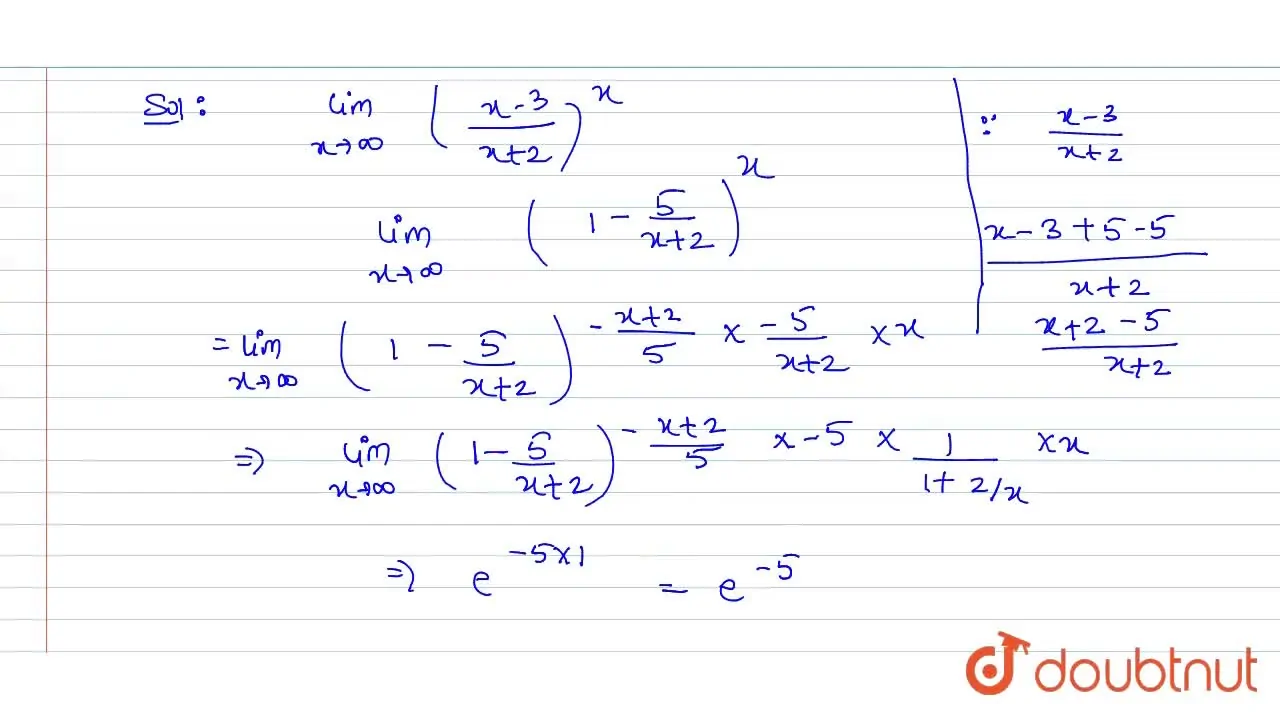 Sol : lim x→∞ ( (x-3)/(x+2) )^x
lim x→∞ ( 1 - 5/(x+2) )^x
= lim x→∞ ( 1 - 5/(x+2) )^( -(x+2)/5 × -5/(x+2) × x )
⇒ lim x→∞ ( 1 - 5/(x+2) )^( -(x+2)/5 × -5 × 1/(1+2/x) × x )
⇒ e^(-5×1) = e^(-5)
∵ (x-3)/(x+2)
(x-3+5-5)/(x+2)
(x+2-5)/(x+2)
doubtnut